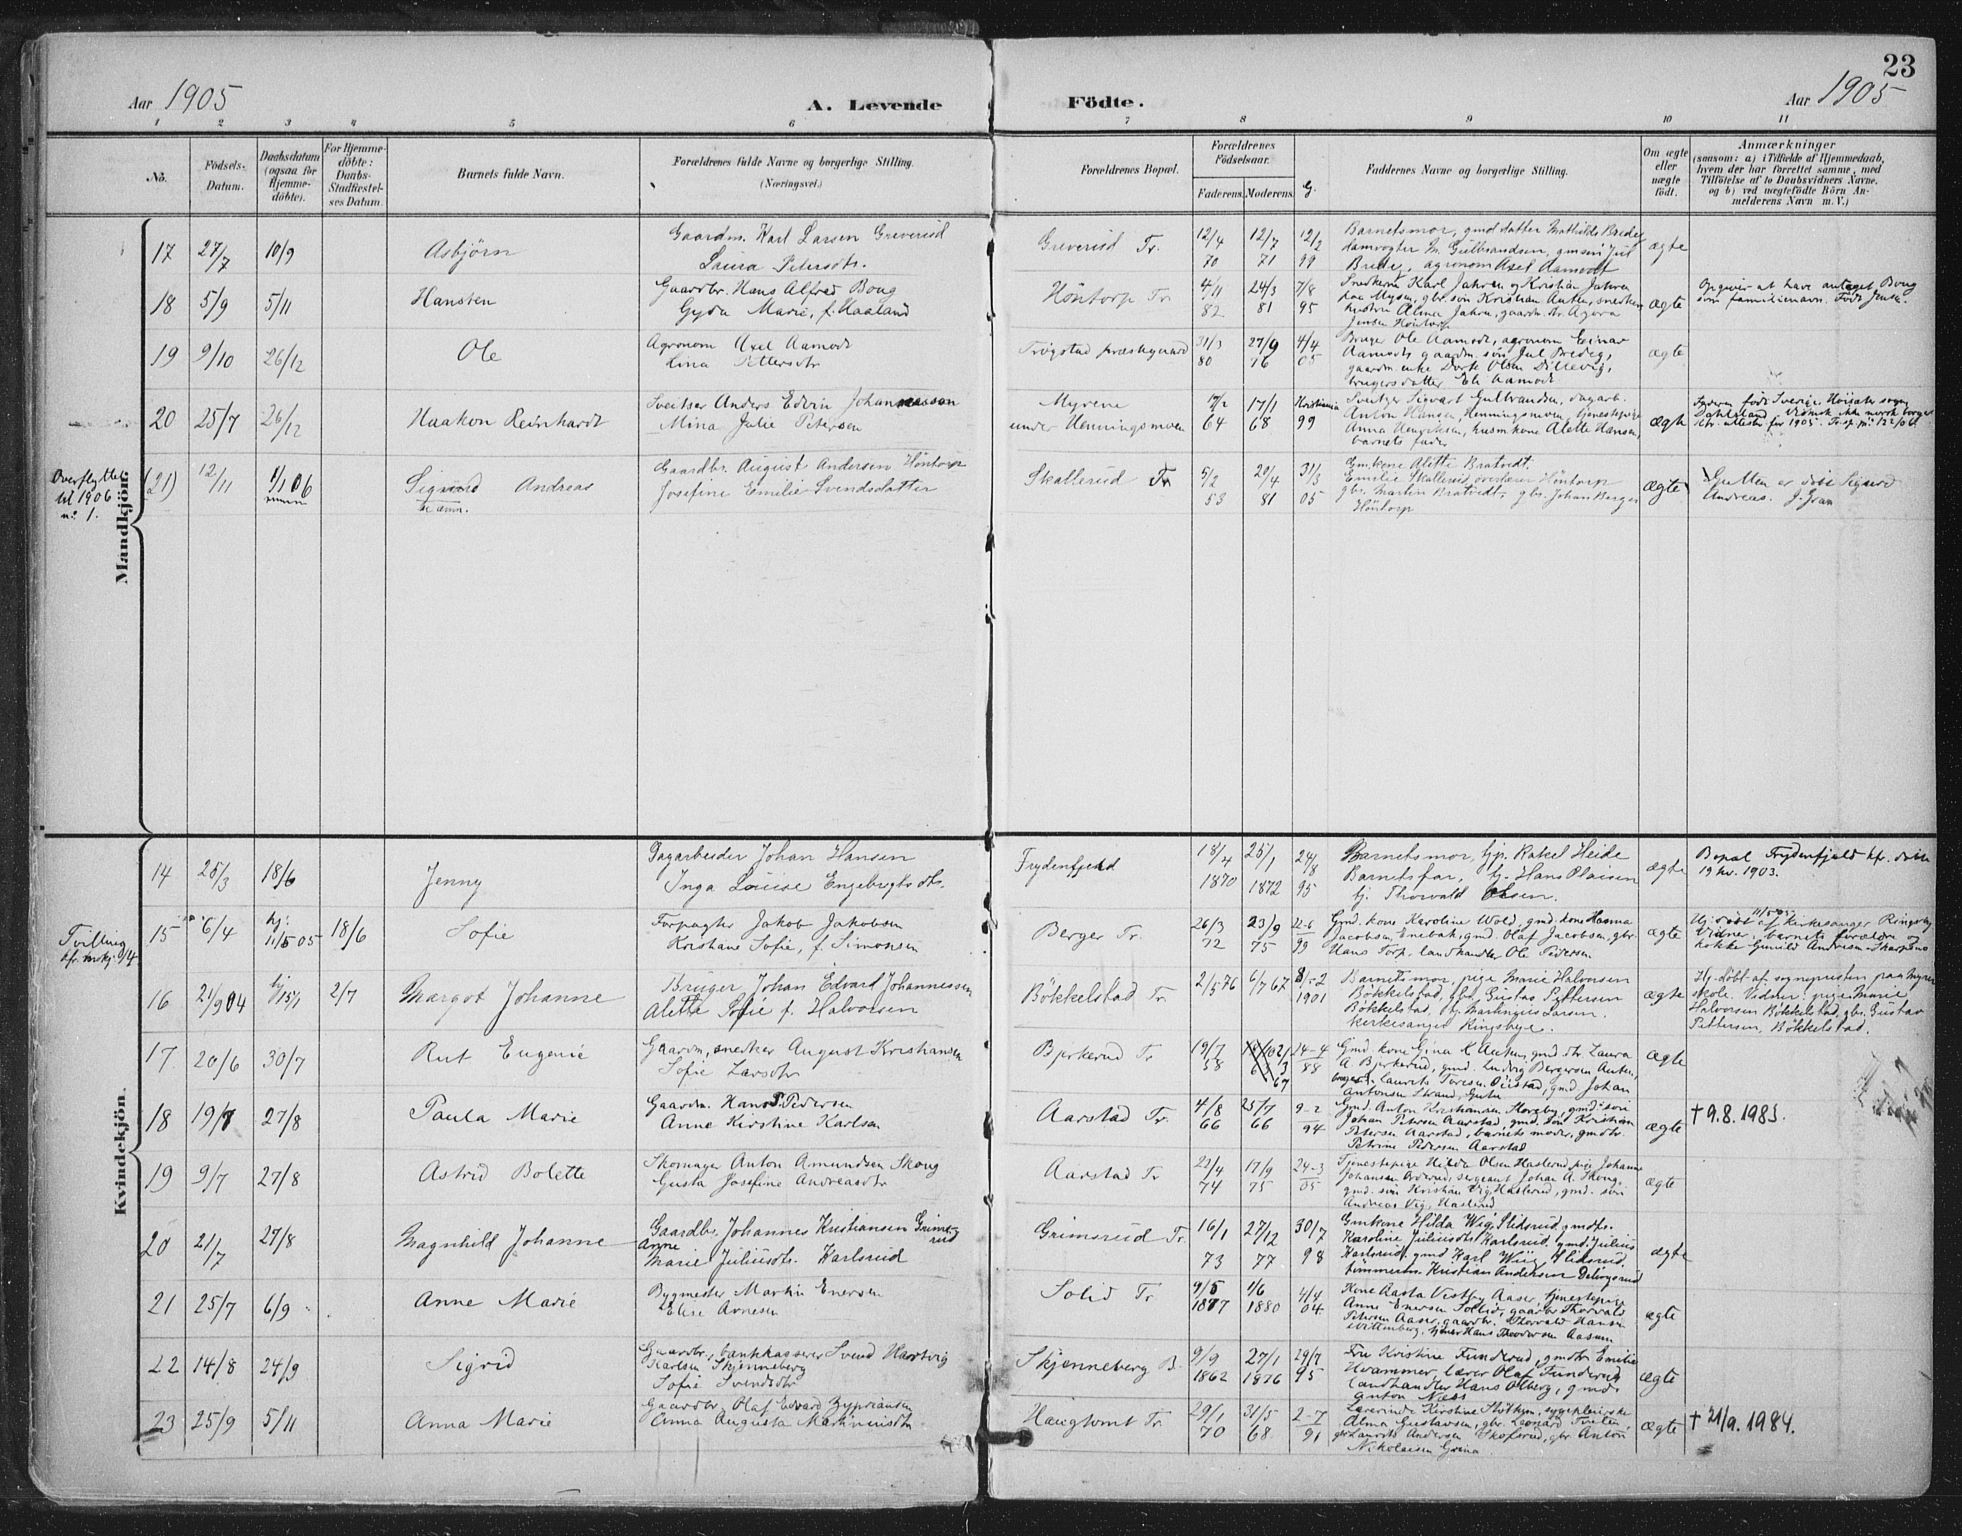 23
Aar 1905
A. Levende
Födte.
Aar 1905
1 2 3 4 5 6 7 8 9 10 11
No.
Födsels-Datum.
Daabsdatum (ogsaa for Hjemme-döbte).
For Hjemme-döbte: Daabs-Stadfæstel-ses Datum.
Barnets fulde Navn.
Forældrenes fulde Navne og borgerlige Stilling. (Næringsvei.)
Forældrenes Bopæl.
Forældrenes Födselsaar.
Faderens. Moderens.
G.
Faddernes Navne og borgerlige Stilling.
Om ægte eller uægte födt.
Anmærkninger
(saasom: a) i Tilfælde af Hjemmedaab, hvem der har forrettet samme, med Tilföielse af to Daabsvidners Navne, og b) ved uægtefödte Börn An-melderens Navn m. V.)
Mandkjön.
17 27/7 10/9 Asbjörn
Gaardm. Karl Larsen Greverud
Laura Petersdtr.
Greverud Tr.
12/4 70 12/7 71 12/2 99
Barnets mor, gmd datter Mathilde Bredeg
Bredeg, agronom Axel Aamodt
ægte
18 5/9 5/11 Hansten
Gaardbr. Hans Alfred Boug
Gyda Marie, f. Haaland
Höntorp Tr.
4/11 82 24/3 81 7/8 95
Snedkerne Karl Jahren og Kristian Jahren
Jensen Höntorp
ægte
Opgiver at have antaget Boug
som familienavn. Födt Jensen
19 9/10 26/12 Ole
Agronom Axel Aamodt
Lina Pettersdtr
Trögstad præstegaard
31/3 80 27/9 76 4/4 05
Bruger Ole Aamodt, agronom Einar
Aamodt, gaardm. sön Jul Bredeg,
gaardm. enke Dorte Olsen Dillevig,
brugers datter Eli Aamodt
ægte
20 25/7 26/12 Haakon Reinhardt
Sveitser Anders Edvin Johannesson
Mina Julie Petersen
Myrene
under Henningsmoen
17/2 64 17/1 68 Kristiania 99
Sveitser Sigvart Gulbrandsen, dagarb.
Anton Hansen, Henningsmoen, tjenestepige
Anna Henriksen, husm. kone Alette Hansen,
barnets fader
ægte
Overflyttet
til 1906
no 1.
(21) 12/11 1/1 06 Sigurd Andreas
Gaardbr. August Andersen Höntorp
Josefine Emilie Svendsdatter
Skallerud Tr
5/2 53 20/4 81 31/3 05
Gm. kone Alette Bratvedt.
gbr. Martin Bratvedt, gbr. Johan Berger
Höntorp
ægte
Gutten er döbt Sigurd
Andreas. J. Gran
Kvindekjön.
14 28/3 18/6 Jenny
Dagarbeider Johan Hansen
Inga Louise Engebregtsdtr.
Frydenfjeld
18/4 1870 25/1 1872 24/8 95
Barnets mor, tjp. Rakel Heide
Barnets far, tj. Hans Olaisen
tj. Thorvald Olsen.
ægte
Bopæl Frydenfjeld
19 1903.
Tvilling
15 6/4 hj: 11/5 05 18/6 Sofie
Forpagter Jakob Jakobsen
Kristane Sofie, f. Simonsen
Berger Tr.
26/3 72 23/9 75 22-6 99
Gmd. kone Karoline Wold, gmd. kone Hanna
Jacobsen, Enebak, gmd. Olaf Jacobsen, gbr
Hans Torp, landhandler Ole Pedersen
ægte
Hj. döbt 11/5 05 af kirkesanger Ringsby
Vidner: barnets forældre og
16 21/9 04 hj 15/1 2/7 Margot Johanne
Bruger Johan Edvard Johannessen
Aletta Sofie f. Halvorsen
Bökkelstad Tr.
2/5 76 6/7 67 31-2 1901
Barnets mor, pige Marie Halvorsen
Bökkelstad, gbr. Gustav Pettersen
Bökkelstad, tj. Martinius Larsen.
kirkesanger Ringsbye.
ægte
Hj. döbt af sognepresten paa Mysen
skole. Vidner: pige Marie
Halvorsen Bökkelstad, gbr. Gustav
Pettersen, Bökkelstad.
17 20/6 30/7 Rut Eugenie
Gaardm, snedker August Kristiansen
Sofie Larsdtr
Bjerkerud Tr
19/7 58 67 24-4 88
Gmd. kone Gina K. Auten, gmd. dtr. Laura
A Bjerkerud, gmd. Ludvig Bergersen Auten,
ægte
18 19/7 27/8 Paula Marie
Gaardm. Hans P. Pedersen
Anne Kirstine Karlsen
Aarstad Tr.
4/8 66 25/7 66 9-2 94
Gmd. Anton Kristiansen Storeby, gmd. sön
Johan Petersen Aarstad, gmd. sön Kristian
Petersen Aarstad, barnets moder, gmdtr.
Petrine Pedersen Aarstad
ægte
† 9.8.1983
19 9/7 27/8 Astrid Bolette
Skomager Anton Amundsen Skoug
Gusta Josefine Andreasdtr
Aarstad Tr
22/4 74 17/9 75 24-3 05
Tjenestepige Hilda Olsen Haslerud, pige Johanne
Johansen Orderud, sergeant Johan A. Skoug,
gmd. sön Kristian Vig, Haslerud, gmd. sön
Andreas Vig, Haslerud
ægte
20 21/7 27/8 Magnhild Johanne
Gaardbr. Johannes Kristiansen Grimsrud
Anne
Marie Juliusdtr. Karlsrud
Grimsrud Tr.
16/1 73 27/12 77 30/7 98
Gm. kone Hilda Wiig, Slidsrud, gmdtr.
Karoline Juliusdtr. Karlsrud, gmd. Julius
Karlsrud, gmd Karl Wiig Slidsrud.
tömmerm. Kristian Andersen
ægte
21 25/7 6/9 Anne Marie
Bygmester Martin Enersen
Elise Arnesen
Solid Tr
9/5 1877 1/6 1880 4/4 04
Kone Aasta Vestby Aaser, tjenestepige
Anne Enersen Sollid, gaardbr Thorvald
Petersen Aaser, gaardbr. Thorvald Hansen
ægte
22 14/8 24/9 Sigrid
Gaardbr., bankkasserer Svend Hartvig
Karlsen Skjenneberg
Sofie Svendsdtr
Skjenneberg B.
9/9 1862 27/1 1876 29/7 95
Fru Kristine Funderud, gmdtr. Emilie
Hvammer, lærer Olaf Funderud
Landhandler Hans Olberg, gmd.
Anton Næss
ægte
23 25/9 5/11 Anna Marie
Gaardbr. Olaf Edvard Zypriansen
Anna Augusta Martiniusdtr
Haugtomt Tr.
29/1 70 31/5 68 2-7 91
Lærerinde Kirstine sygepleierske
Alma Gustavsen, gbr. Leonard Tveten,
gbr. Laurits Andersen Skofsrud, gbr. Anton
Nikolaisen Grina
ægte
† 21/9. 1984.